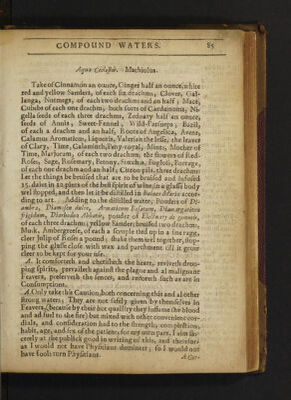 COMPOUND WATERS. 85
Aqua Cœlestis. Mathiolus.
Take of Cinnamon an ounce, Ginger half an ounce, white
red and yellow Sanders, of each six drachms, Cloves, Gal-
langa, Nutmegs, of each two drachms and an half; Mace,
Cubebs of each one drachm; both sorts of Cardamoms, Ni-
gella seeds of each three drachms, Zedoary half an ounce,
seeds of Annis, Sweet-Fennel, Wild-Parsneps, Bazil,
of each a drachm and an half, Roots of Angelica, Avens,
Calamus Aromaticus, Liquoris, Valerian the lesse, the leaves
of Clary, Time, Calaminth, Peny-royal, Mints, Mother of
Time, Marjoram, of each two drachms: the flowers of Red-
Roses, Sage, Rosemary, Betony, Stœchas, Bugloss, Borrage,
of each one drachm and an half; Citron pils, three drachms:
Let the things be bruised that are to be bruised and infused
15. daies in 12. pints of the best spirit of wine, in a glasse body
wel stopped, and then let it be distilled in Balneo Mariæ accor-
ding to art. Adding to the distilled water, Pouders of Di-
ambra, Diamosen dulce, Aromaticum Rosatum, Diamargariton
frigidum, Diarhodon Abbatis, pouder of Electuary de gemmis,
of each three drachms; yellow Sanders bruised two drachms,
Musk, Ambergreese, of each a scruple tied up in a fine ragg,
cleer Julip of Roses a pound; shake them wel together, stop-
ping the glasse close with wax and parchment til it grow
cleer to be kept for your use.
A. It comforteth and cherisheth the heart, reviveth droo-
ping spirits, prevaileth against the plague and al malignant
Feavers, preserveth the sences, and restoreth such as are in
Consumptions.
A Only take this Caution, both concerning this and al other
strong waters; They are not safely given by themselves in
Feavers, (because by their hot quallity they inflame the blood
and ad fuel to the fire) but mixed with other convenient cor-
dials, and consideration had to the strength, complexion,
habit, age, and sex of the patient; for my own part, I aim sin-
cerely at the publick good in writing of this, and therefore
as I would not have Physitians domineer; so I would not
have fools turn Physitians.
A Cor-